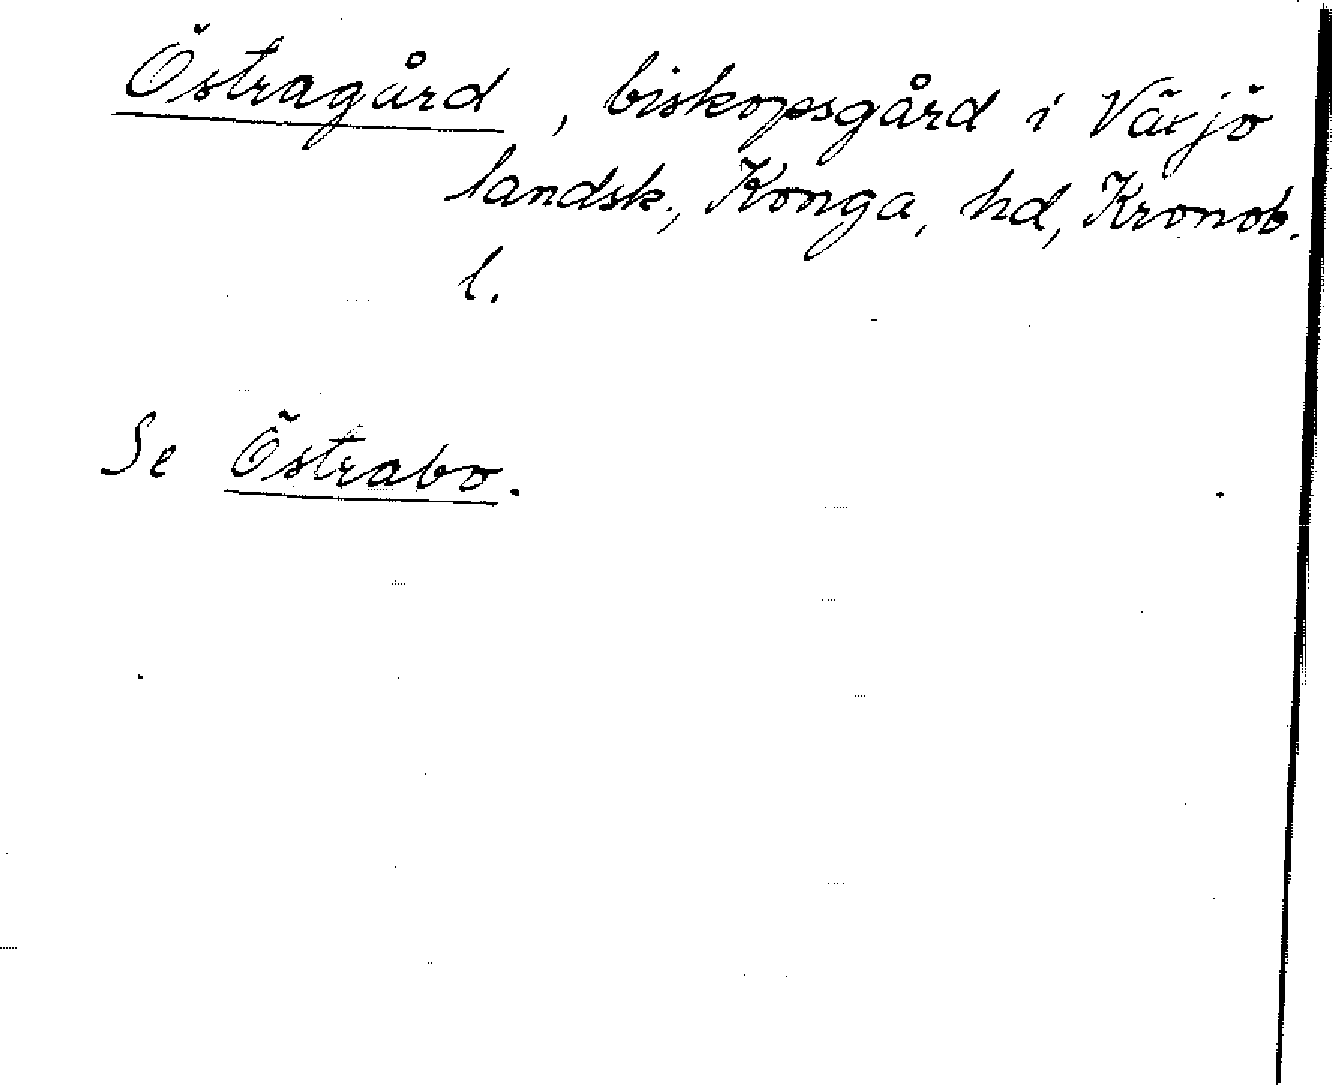 Östragård, biskopsgård i Växjö
landsk., Konga, hd, Kronob.
l.
Se Östrabo.